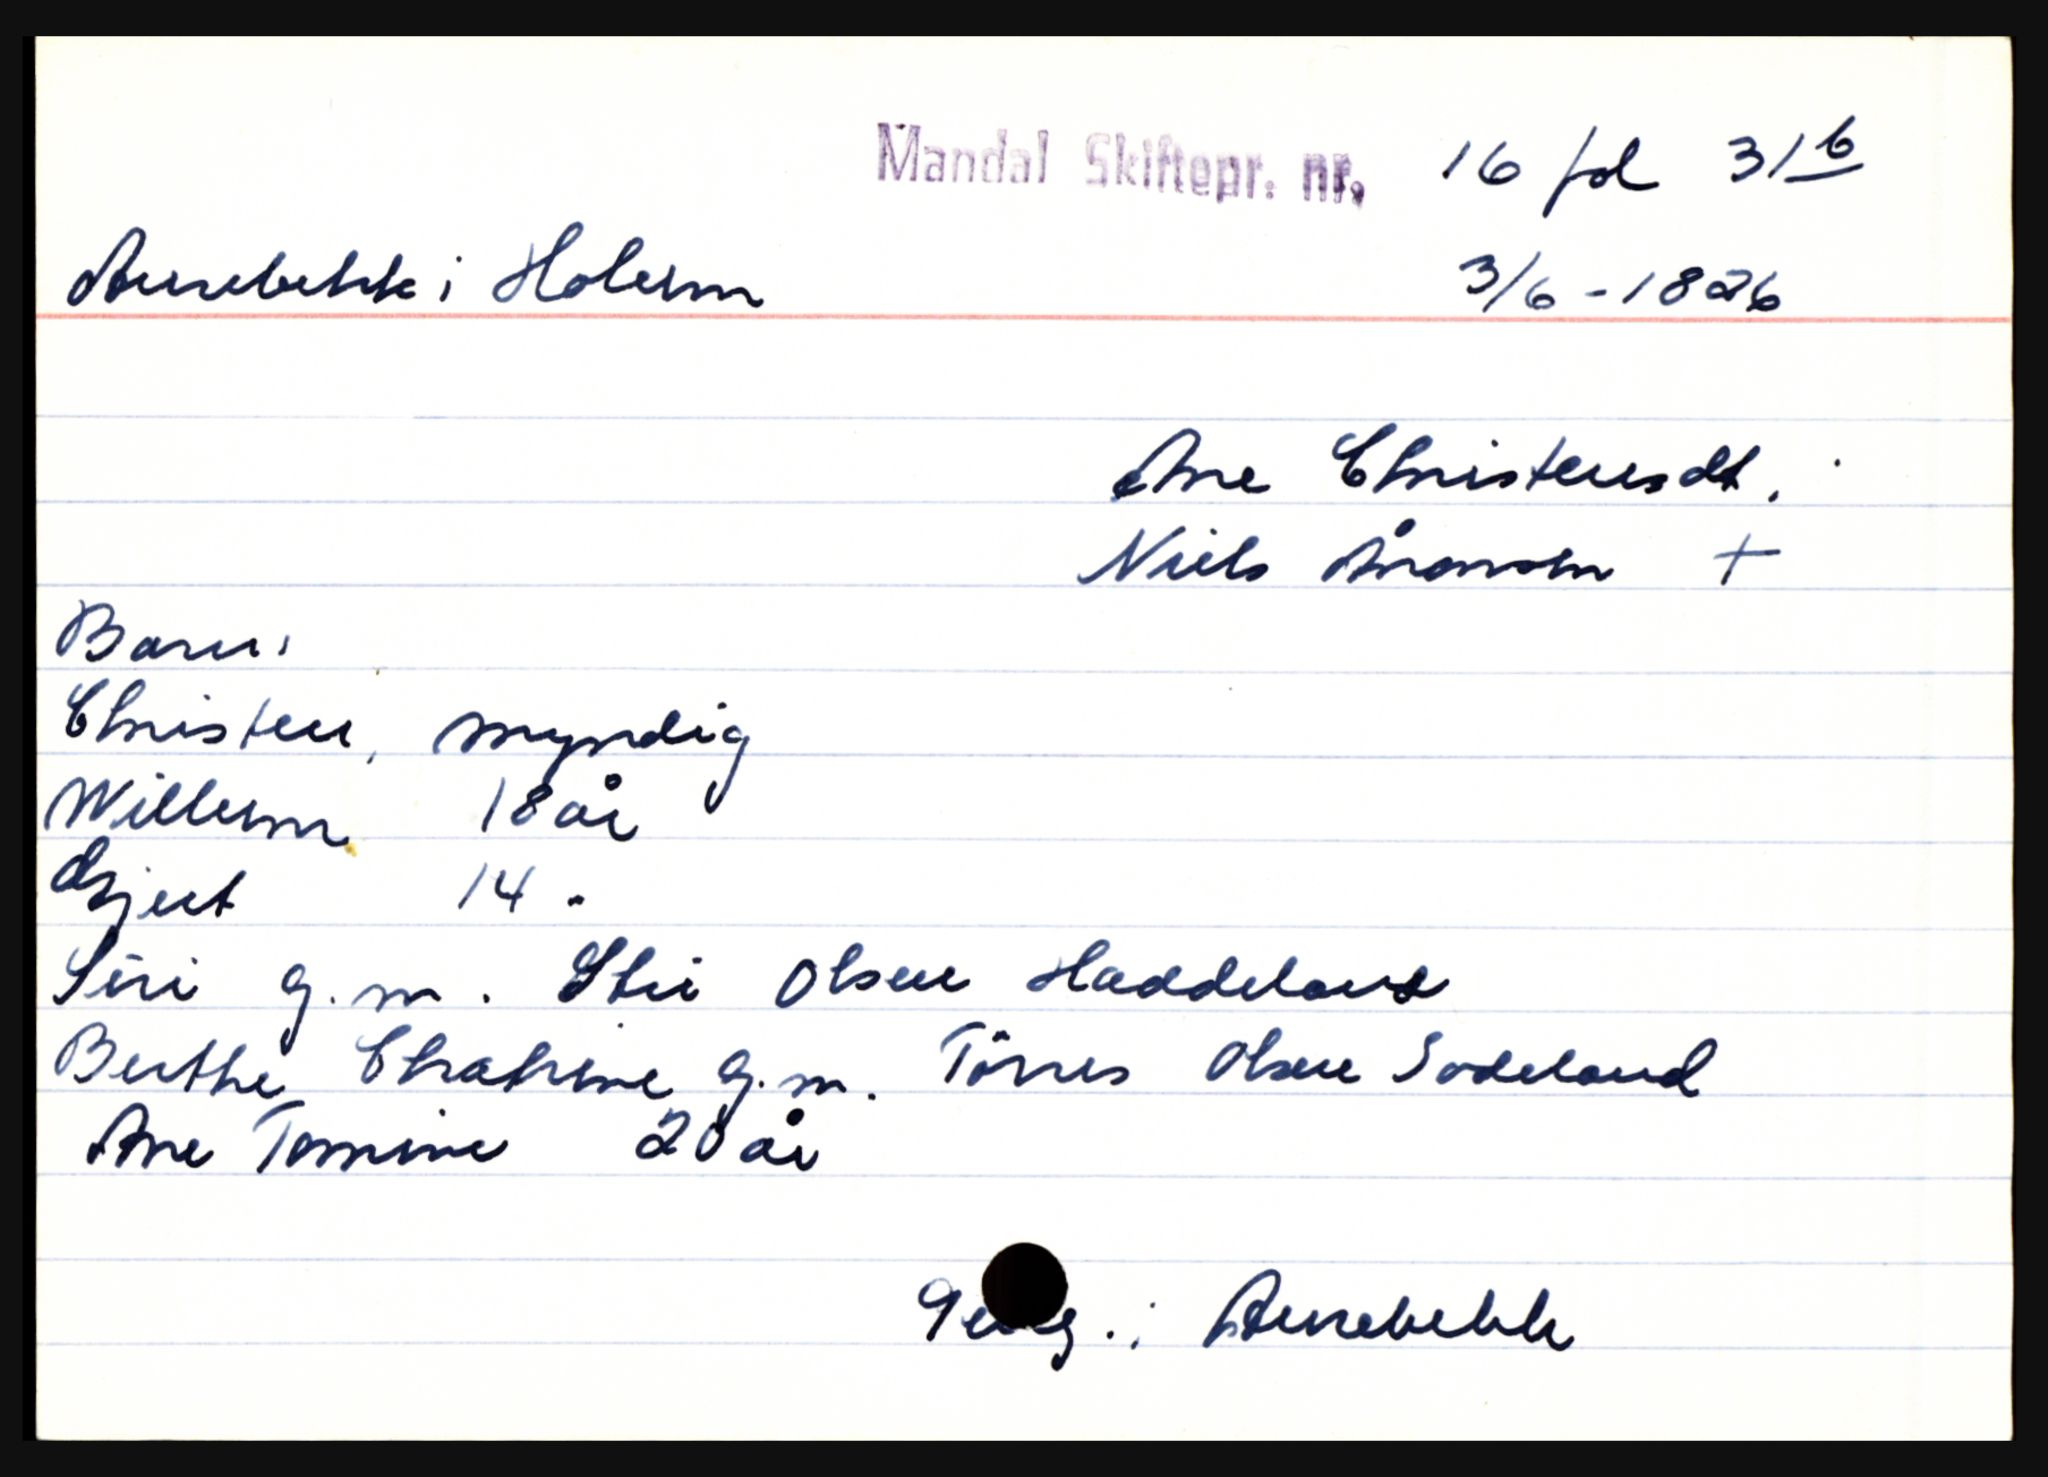 Mandal Skiftepr. nr. 16 fol 31 b
Aurebekk i Holum 3/6 - 1826
Ane Christensdt.
Niels Aronsen +
Barn:
Christen, myndig
Willum 18 år
Gjert 14 "
Siri g. m. Stie Olsen Haddeland
Berthe Chatrine g. m. Törres Olsen Sodeland
Ane Tomine 20 år
i Aurebekk